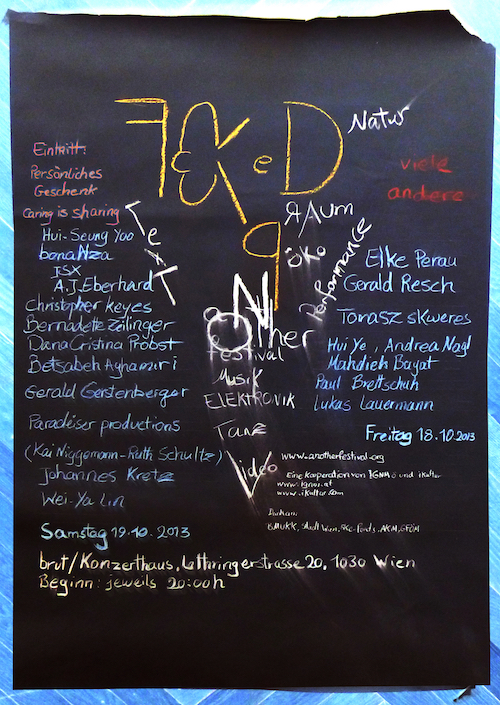 Natur
Eintritt:
Persönliches
Geschenk
Caring is sharing
viele
andere
Text
RAUM
ÖKO
Performance
aNOther
Festival
Musik
ELEKTRONIK
Tanz
Video
Hui-Seung Yoo
banaNza
JSX
A.J. Eberhard
Christopher Keyes
Bernadette Zeilinger
Dana Cristina Probst
Betsabeh Aghamiri
Gerald Gerstenberger
Paradeiser productions
(Kai Niggemann-Ruth Schultz)
Johannes Kretz
Wei-Ya Lin
Samstag 19.10.2013
Elke Perau
Gerald Resch
Tomasz Skweres
Hui Ye, Andrea Nagl
Mahdieh Bayat
Paul Brettschuh
Lukas Lauermann
Freitag 18.10.2013
www.anotherfestival.org
Eine Kooperation von IGNM ö und iKultur
www.ignm.at
www.ikultur.com
BMUKK, Stadt Wien, SKE-Fonds, AKM, GFÖM
brut/Konzerthaus, Lothringerstrasse 20, 1030 Wien
Beginn: jeweils 20:00h